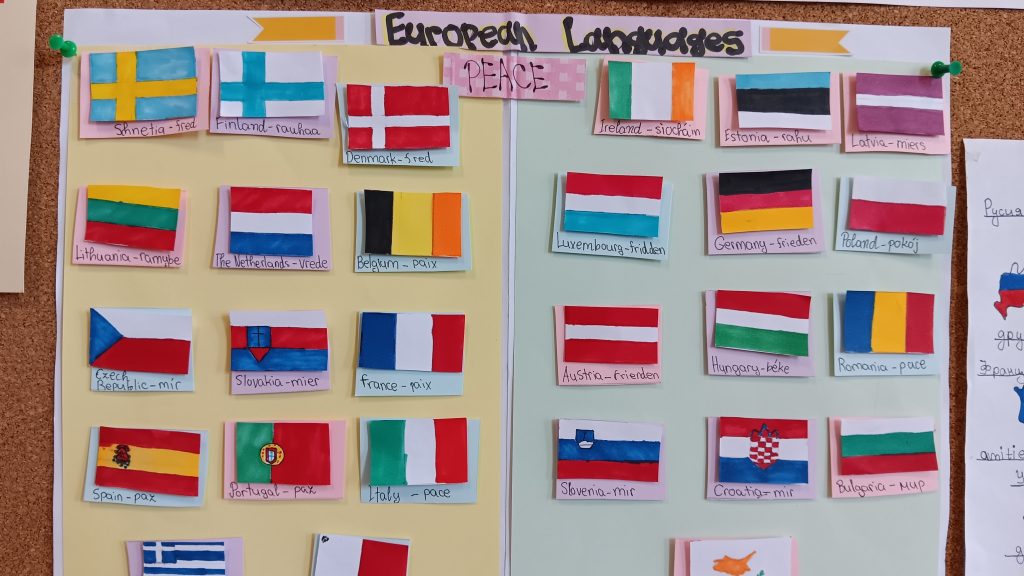 European Languages
PEACE
Shnetia-fred
Finland-rauhaa
Denmark-fred
Ireland-siocháin
Estonia-rahu
Latvia-miers
Lithuania-ramybe
The Netherlands-vrede
Belgium-paix
Luxembourg-fridden
Germany-frieden
Poland-pokój
Czech
Republic-mír
Slovakia-mier
France-paix
Austria-frierden
Hungary-béke
Romania-pace
Spain-pax
Portugal-paz
Italy-pace
Slovenia-mir
Croatia-mir
Bulgaria-мир
Русия
дру
Франц
amitie